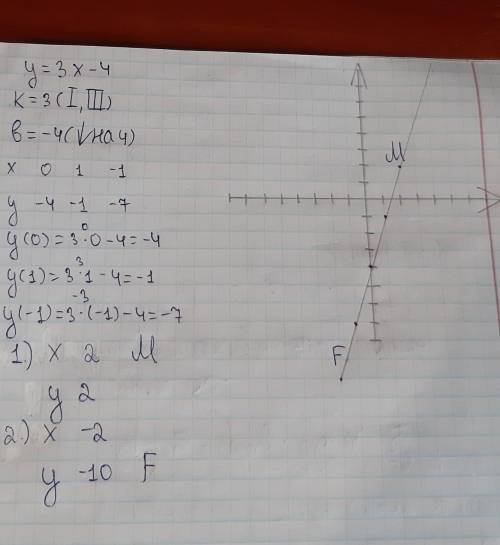 y = 3x - 4
k = 3 (I, III)
b = -4 (↓ на 4)
x 0 1 -1
y -4 -1 -7
y(0) = 3·0 - 4 = -4
0
y(1) = 3·1 - 4 = -1
3
y(-1) = 3·(-1) - 4 = -7
-3
1.) x 2 M
y 2
2.) x -2
y -10 F
M
F